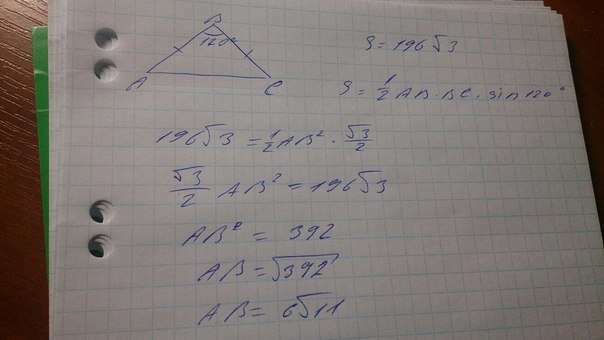 B
120°
A
C
S = 196√3
S = 1/2 AB · BC · sin 120°
196√3 = 1/2 AB² · √3/2
√3/2 AB² = 196√3
AB² = 392
AB = √392
AB = 6√11